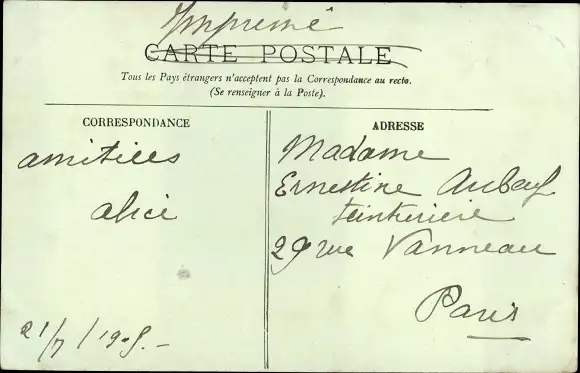 Imprimé
CARTE POSTALE
Tous les Pays étrangers n'acceptent pas la Correspondance au recto.
(Se renseigner à la Poste).
CORRESPONDANCE
amitiées
alice
21/7/190
ADRESSE
Madame
Ernestine
teinturière
29 rue Vanneau
Paris